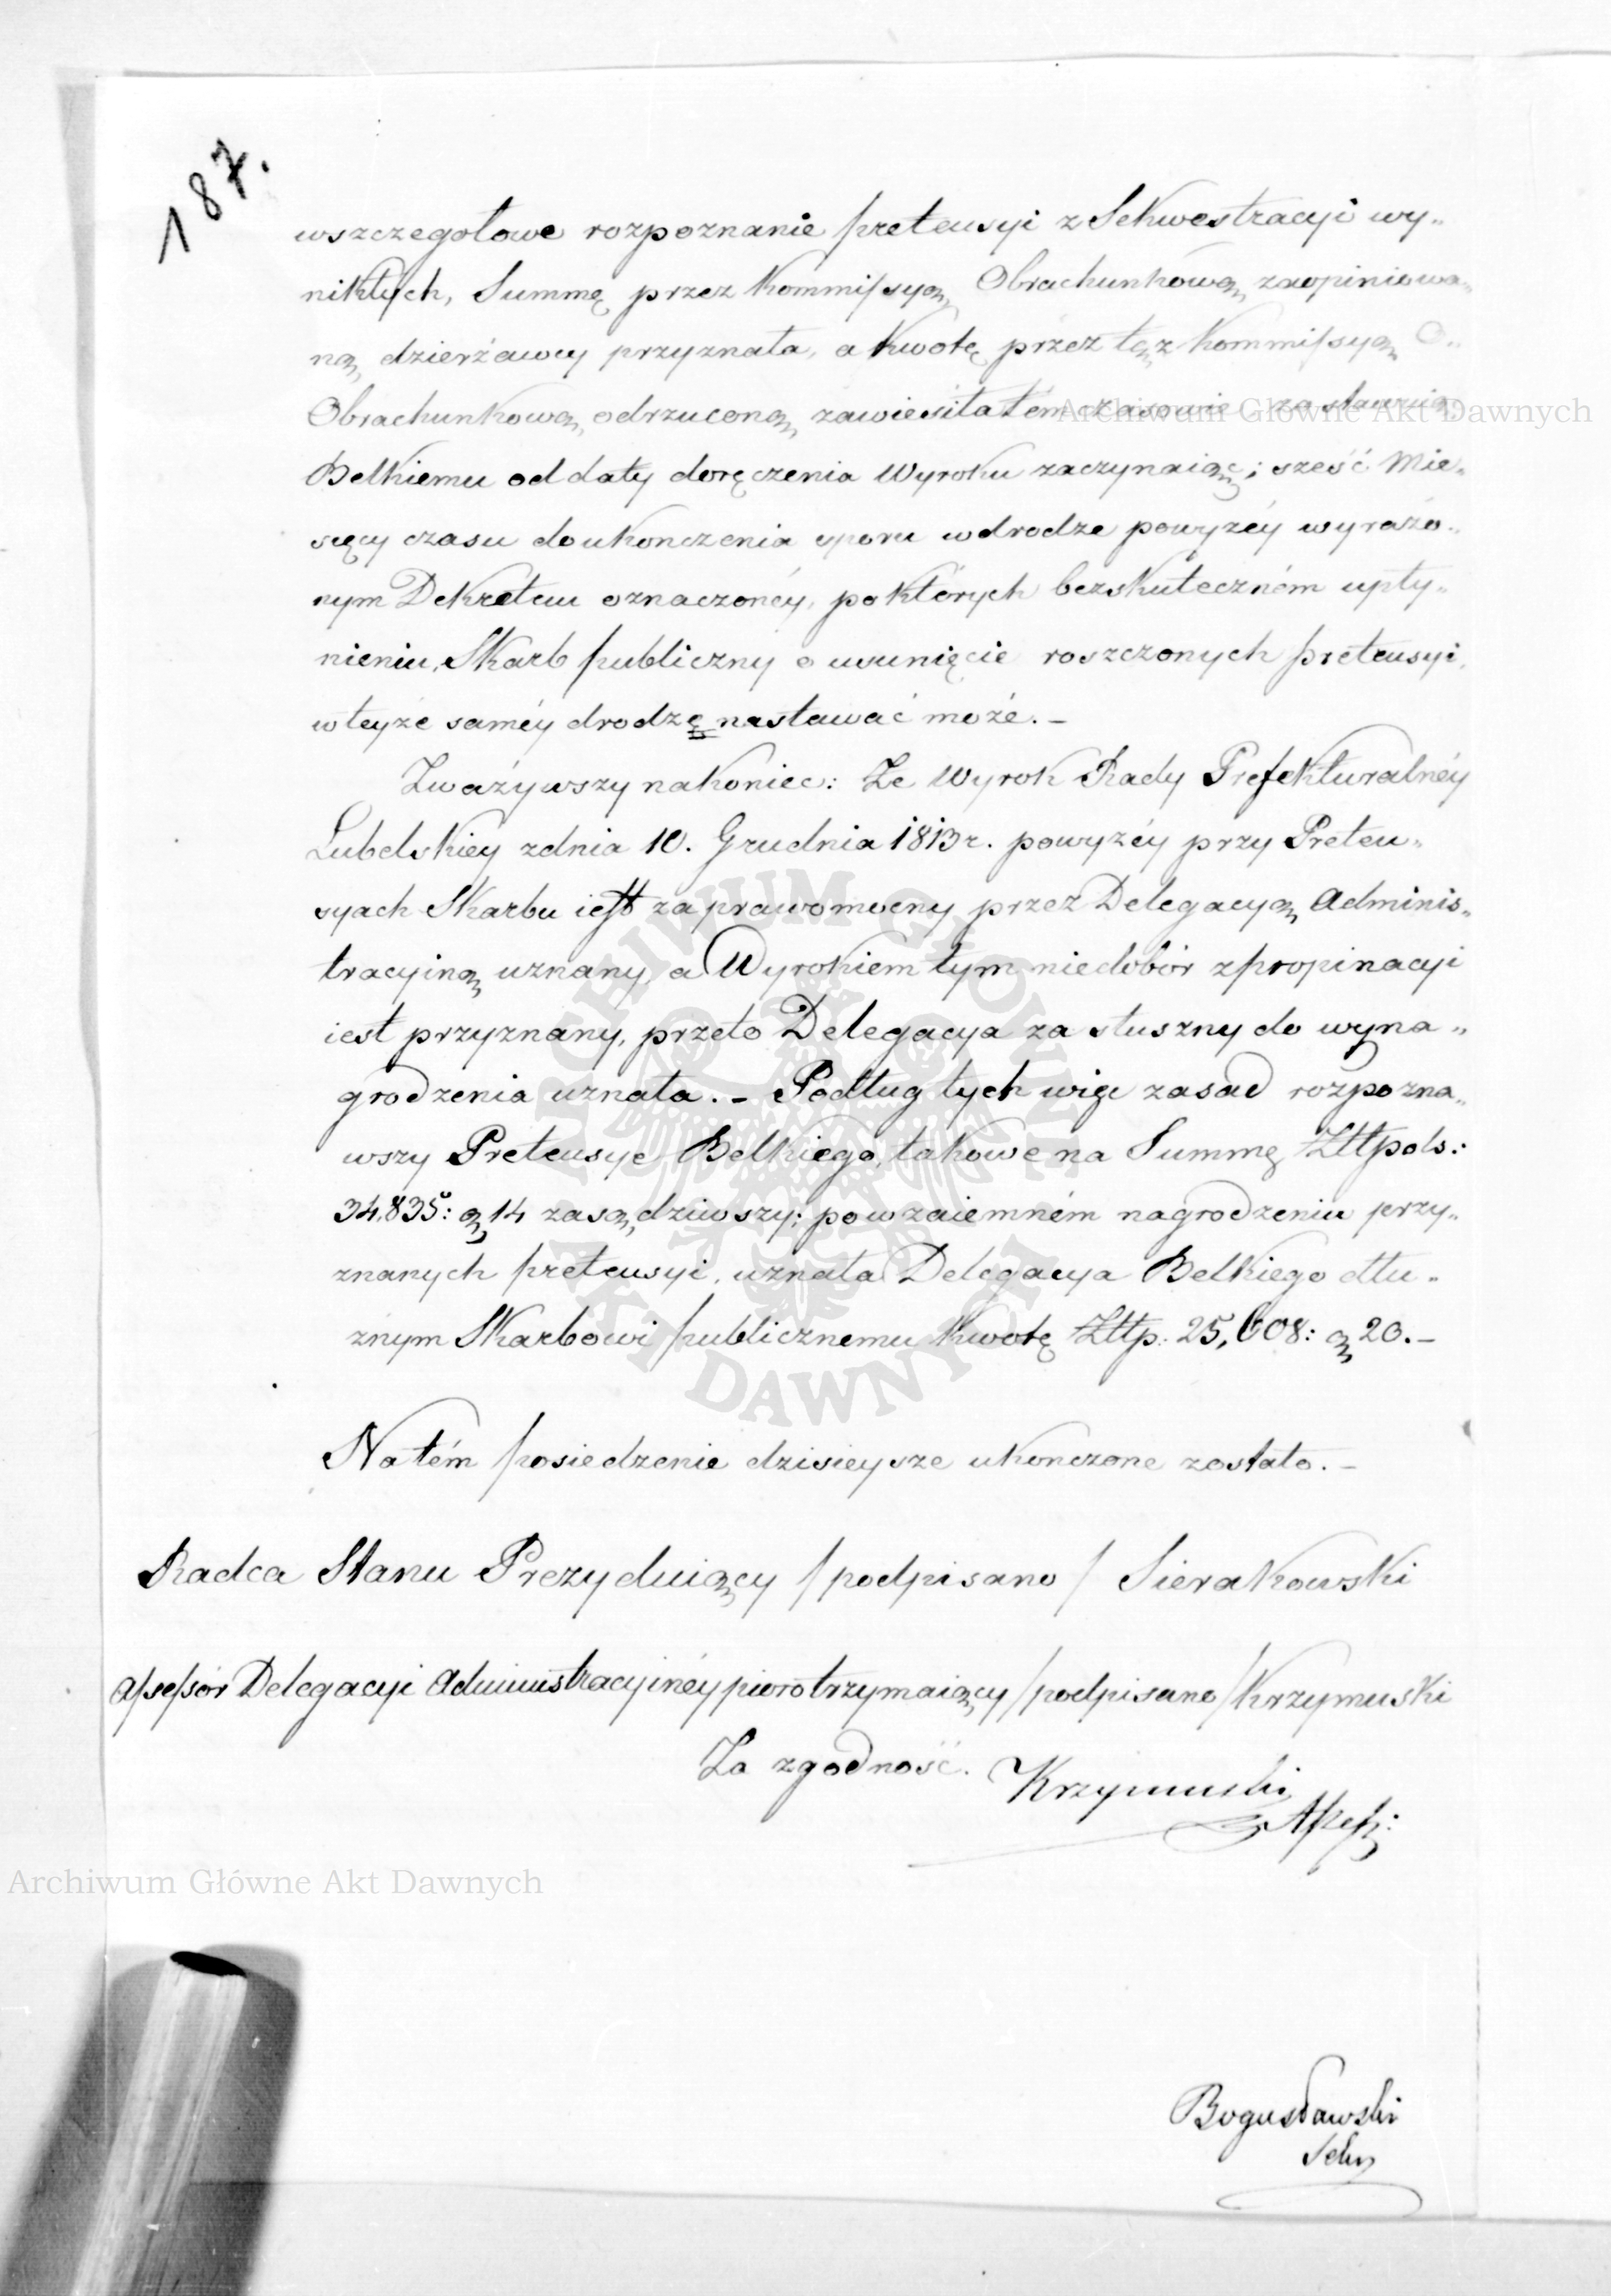 187.
wszczegołowe rozpoznanie pretensyi z Sekwestracyi wy„
nikłych, Summę przez Kommissyą Obrachunkową zaopiniowa„
ną, dzierżawcy przyznała, a kwotę przez tąż Kommissyą O„
Obrachunkową odrzuconą, zawiesiła tém czasowie zostawuiąc
Belkiemu od daty doręczenia Wyroku zaczynaiąc; sześć Mie„
sięcy czasu do ukonczenia sporu w drodze powyżéy wyrażo„
nym Dekretem oznaczonéy, po których bezskuteczném upły„
nieniu, Skarb publiczny o usunięcie roszczonych pretensyi,
w teyże saméy drodzę nastawać może. –
Zważywszy nakoniec: Że Wyrok Rady Prefekturalnéy
Lubelskiey z dnia 10. Grudnia 1813 r. powyżéy przy Preten„
syach Skarbu iest za prawomocny przez Delegacyą Adminis„
tracyiną uznany, a Wyrokiem tym niedobór z propinacyi
iest przyznany, przeto Delegacya za słuszny do wyna„
grodzenia uznała. – Podług tych więc zasad rozpozna„
wszy Pretensye Belkiego, takowe na Summę Złłpols:
34,835: g 14 zasądziwszy; po wzaiemném nagrodzeniu przy„
znanych pretensyi, uznała Delegacya Belkiego dłu„
żnym Skarbowi publicznemu kwotę Złłp. 25,608: g 20. –
Na tém posiedzenie dzisieysze ukonczone zostało. –
Radca Stanu Prezyduiący /podpisano/ Sierakowski
Assessór Delegacyi Administracyinéy pioro trzymaiący /podpisano/ Krzymuski
Za zgodność. Krzymuski
Assess:
Bogusławski
Sekr
Archiwum Główne Akt Dawnych
Archiwum Główne Akt Dawnych
ARCHIWUM GŁÓWNE
AKT DAWNYCH